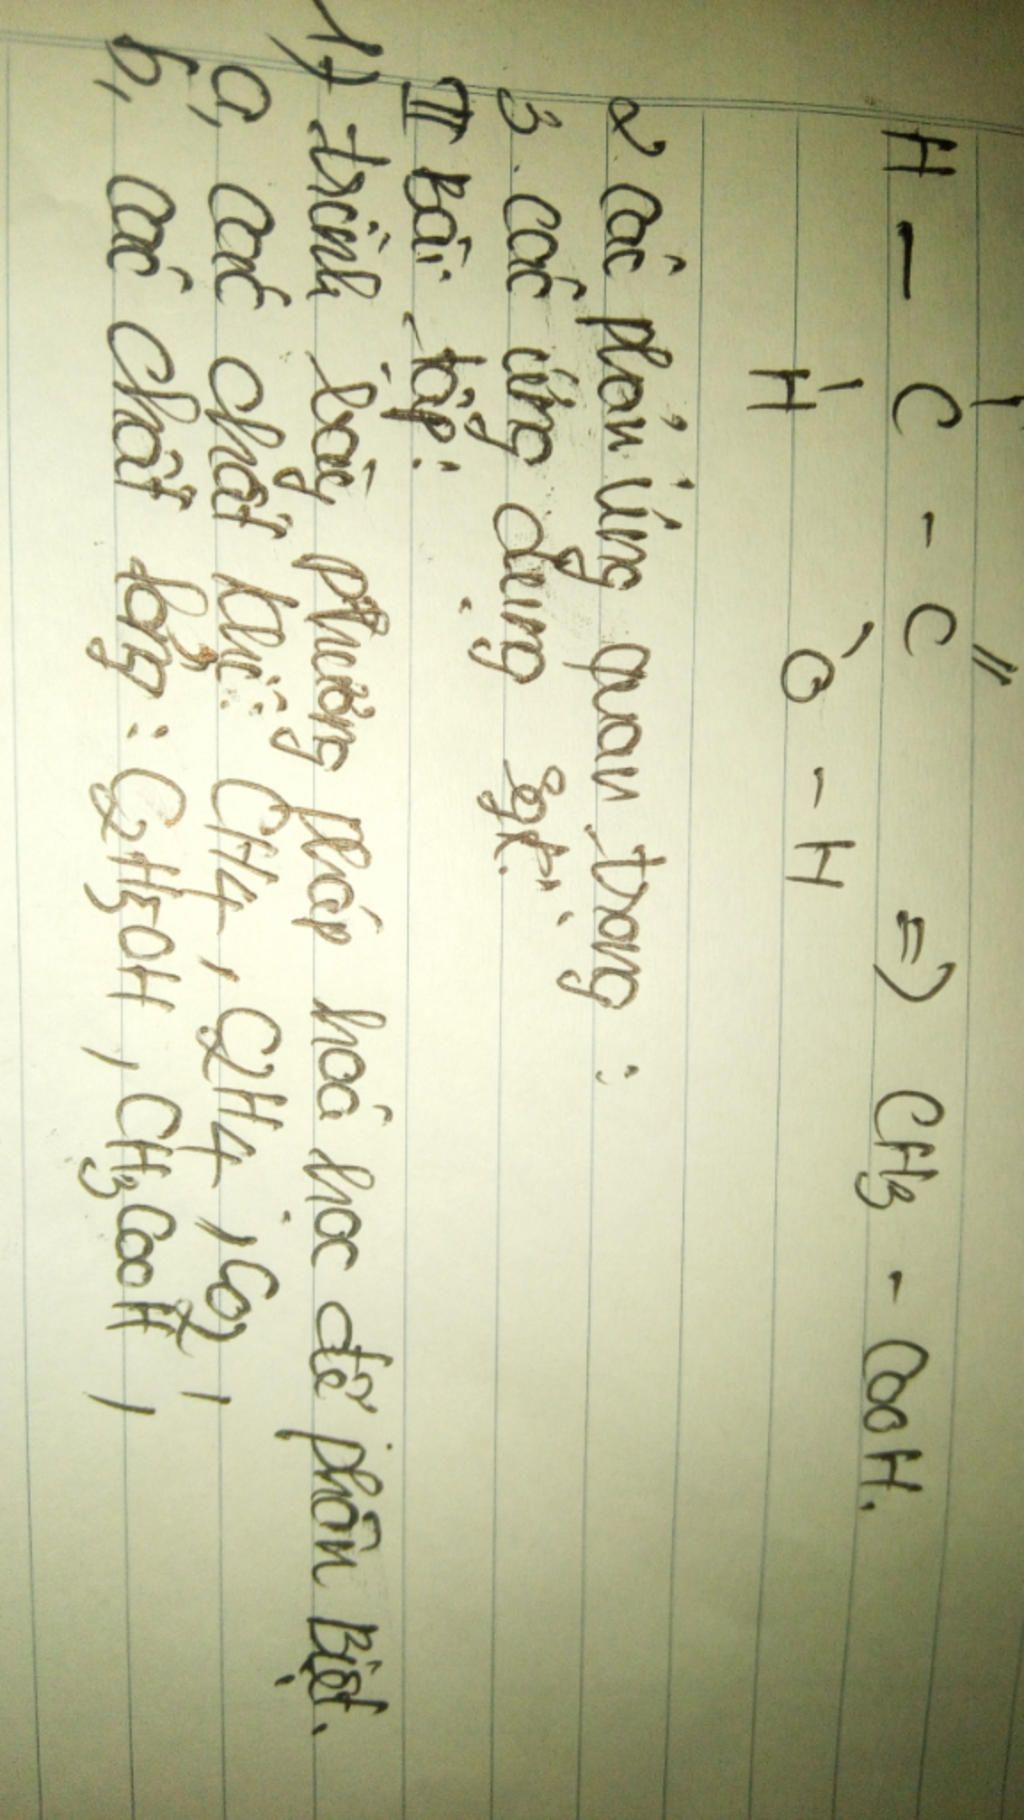 H - C - C => CH3 - COOH.
H O - H
2 các phản ứng quan trọng :
3. các ứng dụng
II Bài tập:
1, trình bày phương pháp hoá học để phân Biệt.
a, các chất khí: CH4, C2H4, CO2,
b, các chất lỏng: C2H5OH, CH3COOH,